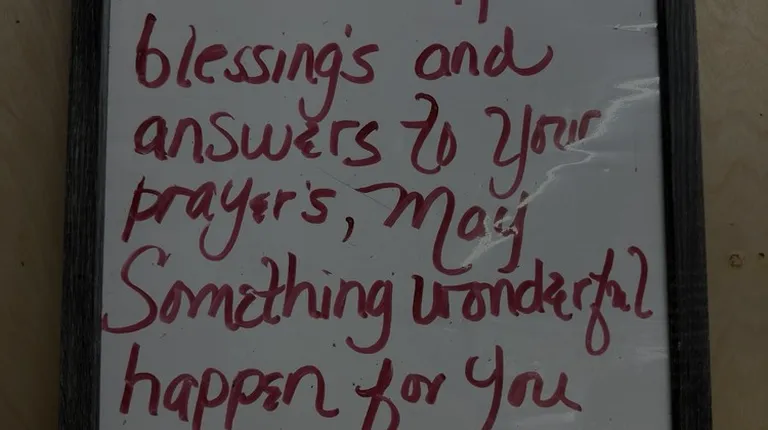 blessing's and
answers to your
prayer's, May
Something wonderful
happen for you